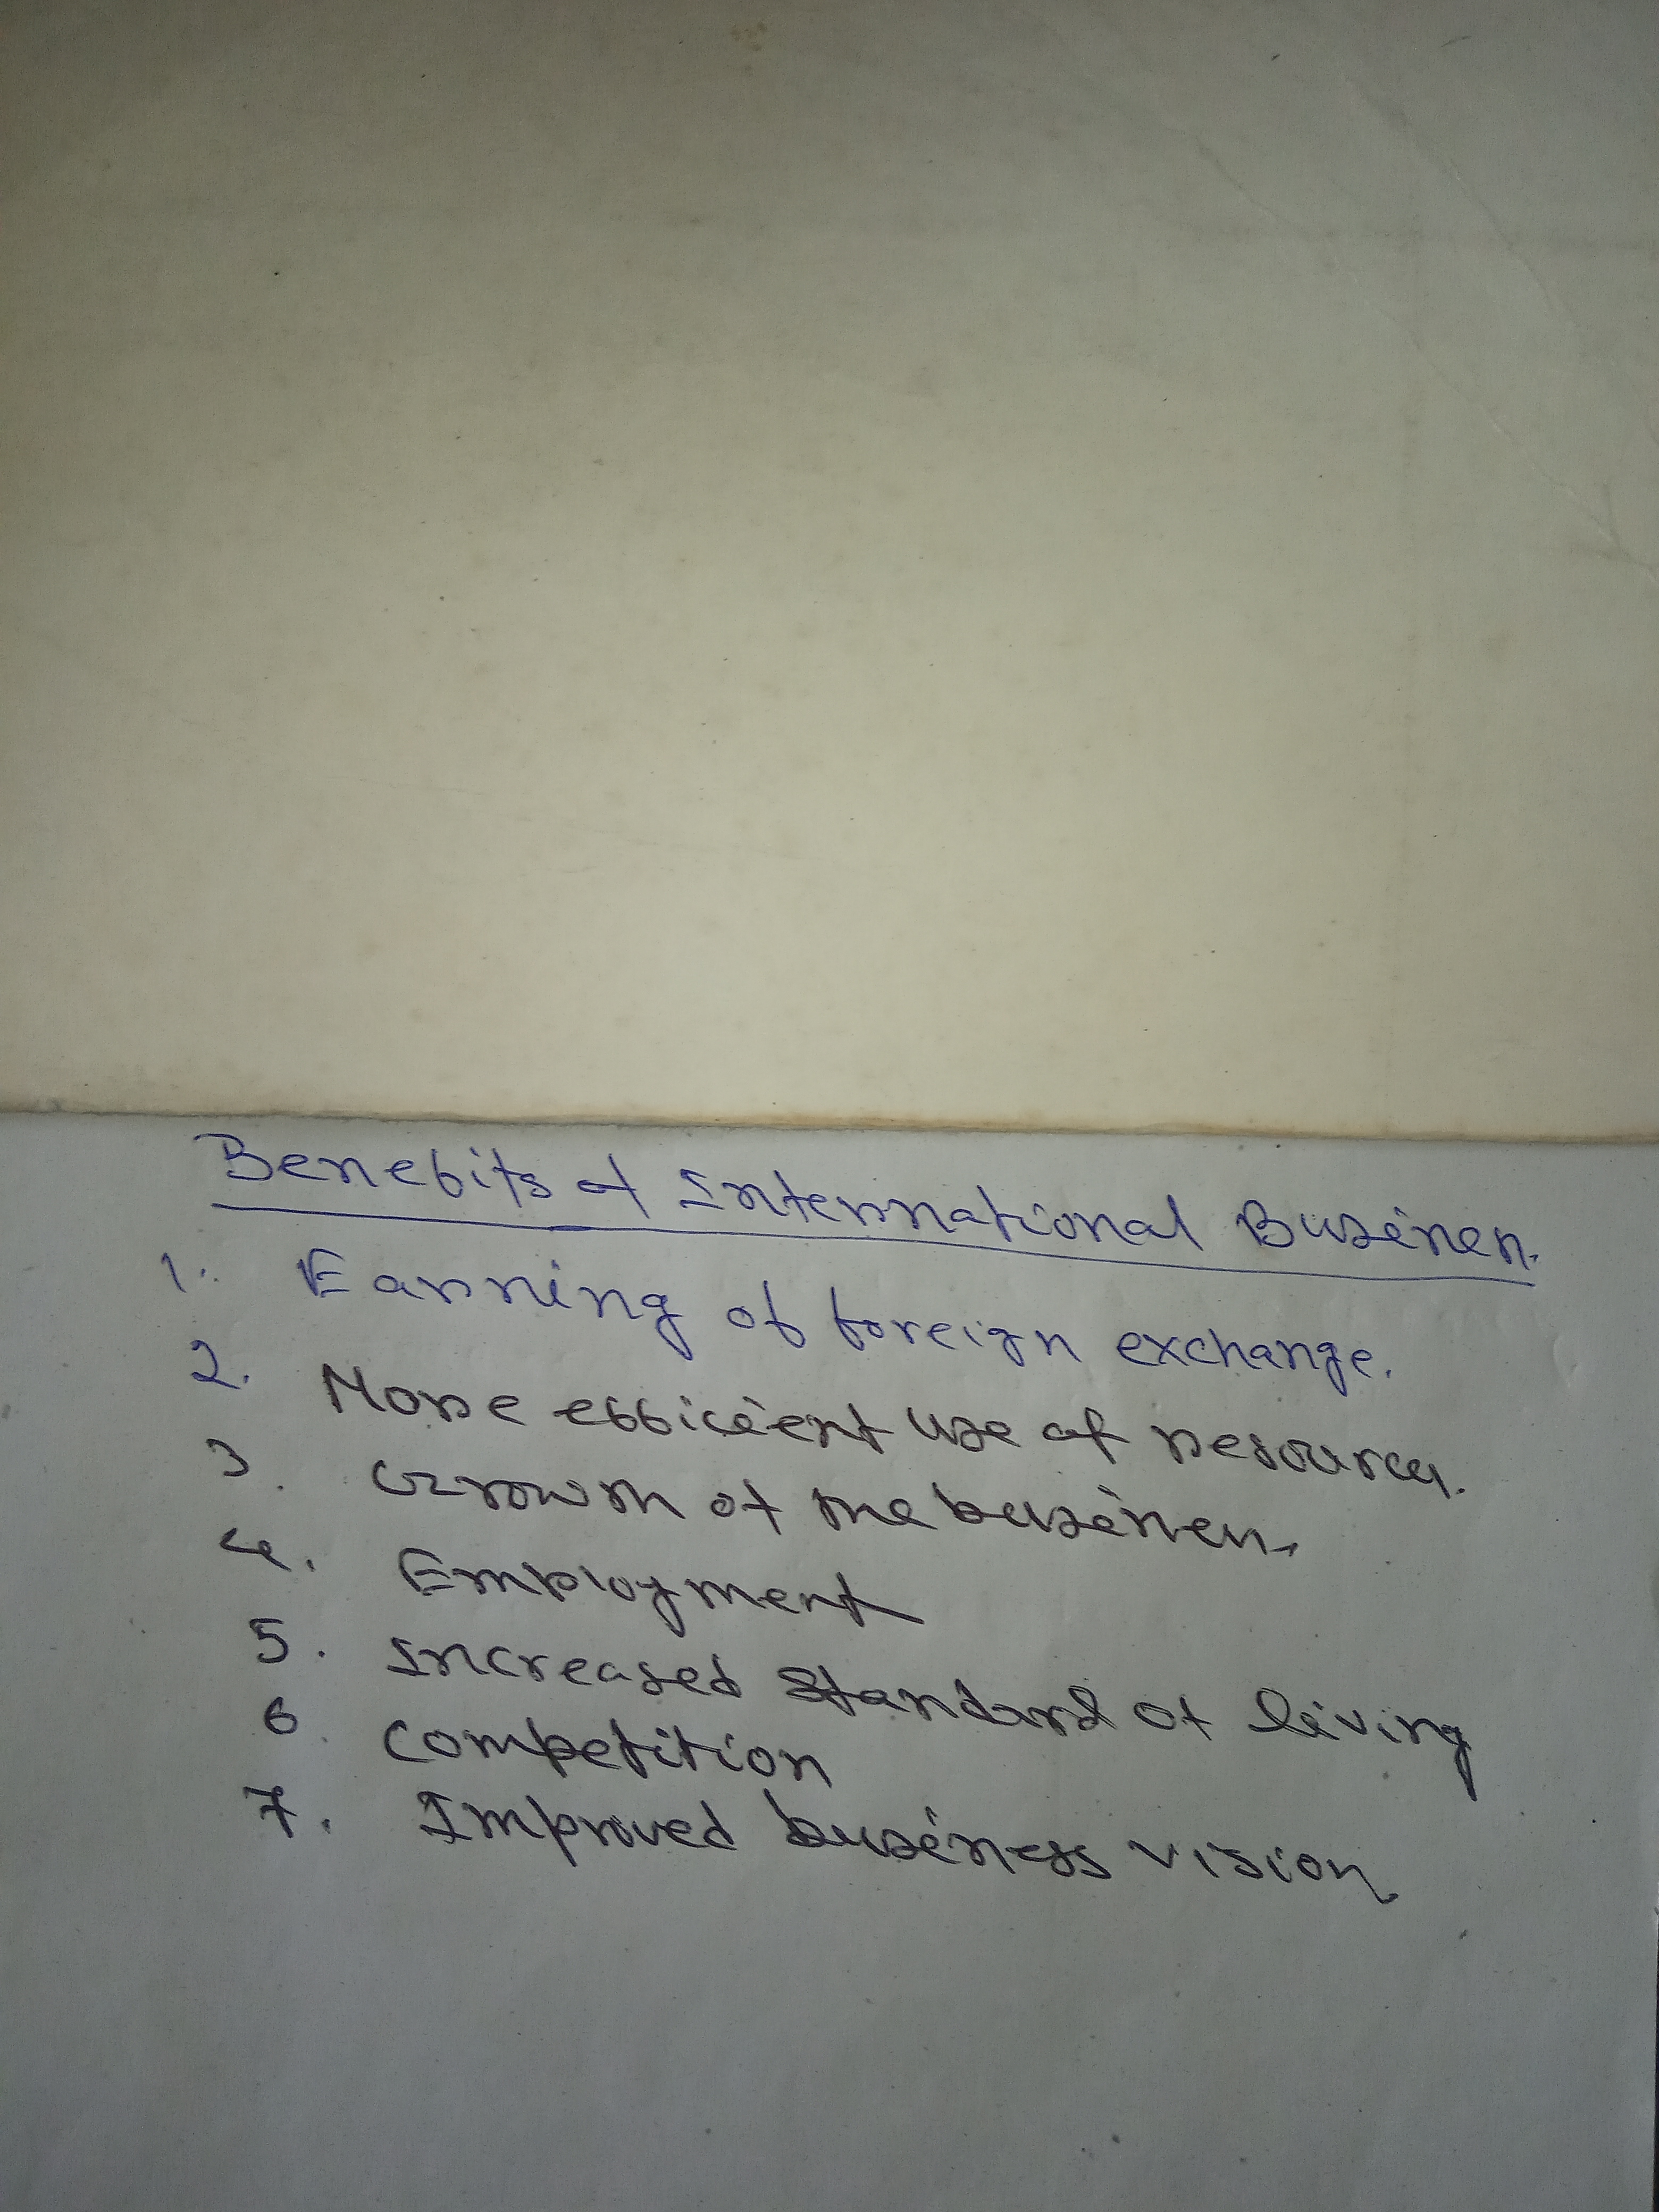 Benefits of International Business.
1. Earning of foreign exchange.
2. More efficient use of resources.
3. Growth of the business.
4. Employment
5. Increased standard of living
6. Competition
7. Improved business vision